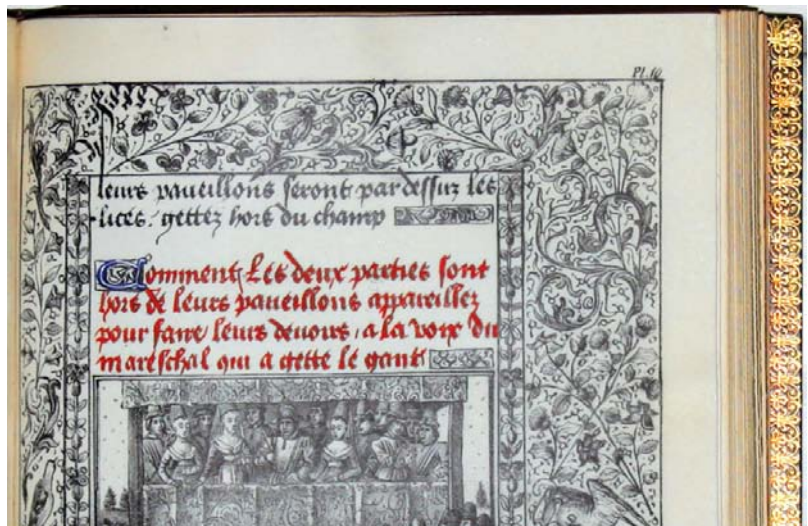 Pl. 10
leurs paveillons seront par dessuz les
lices. gettez hors du champ
Comment Les deux parties sont
hors de leurs paveillons appareillez
pour faire leurs devoirs, a la voix du
mareschal qui a gette le gant